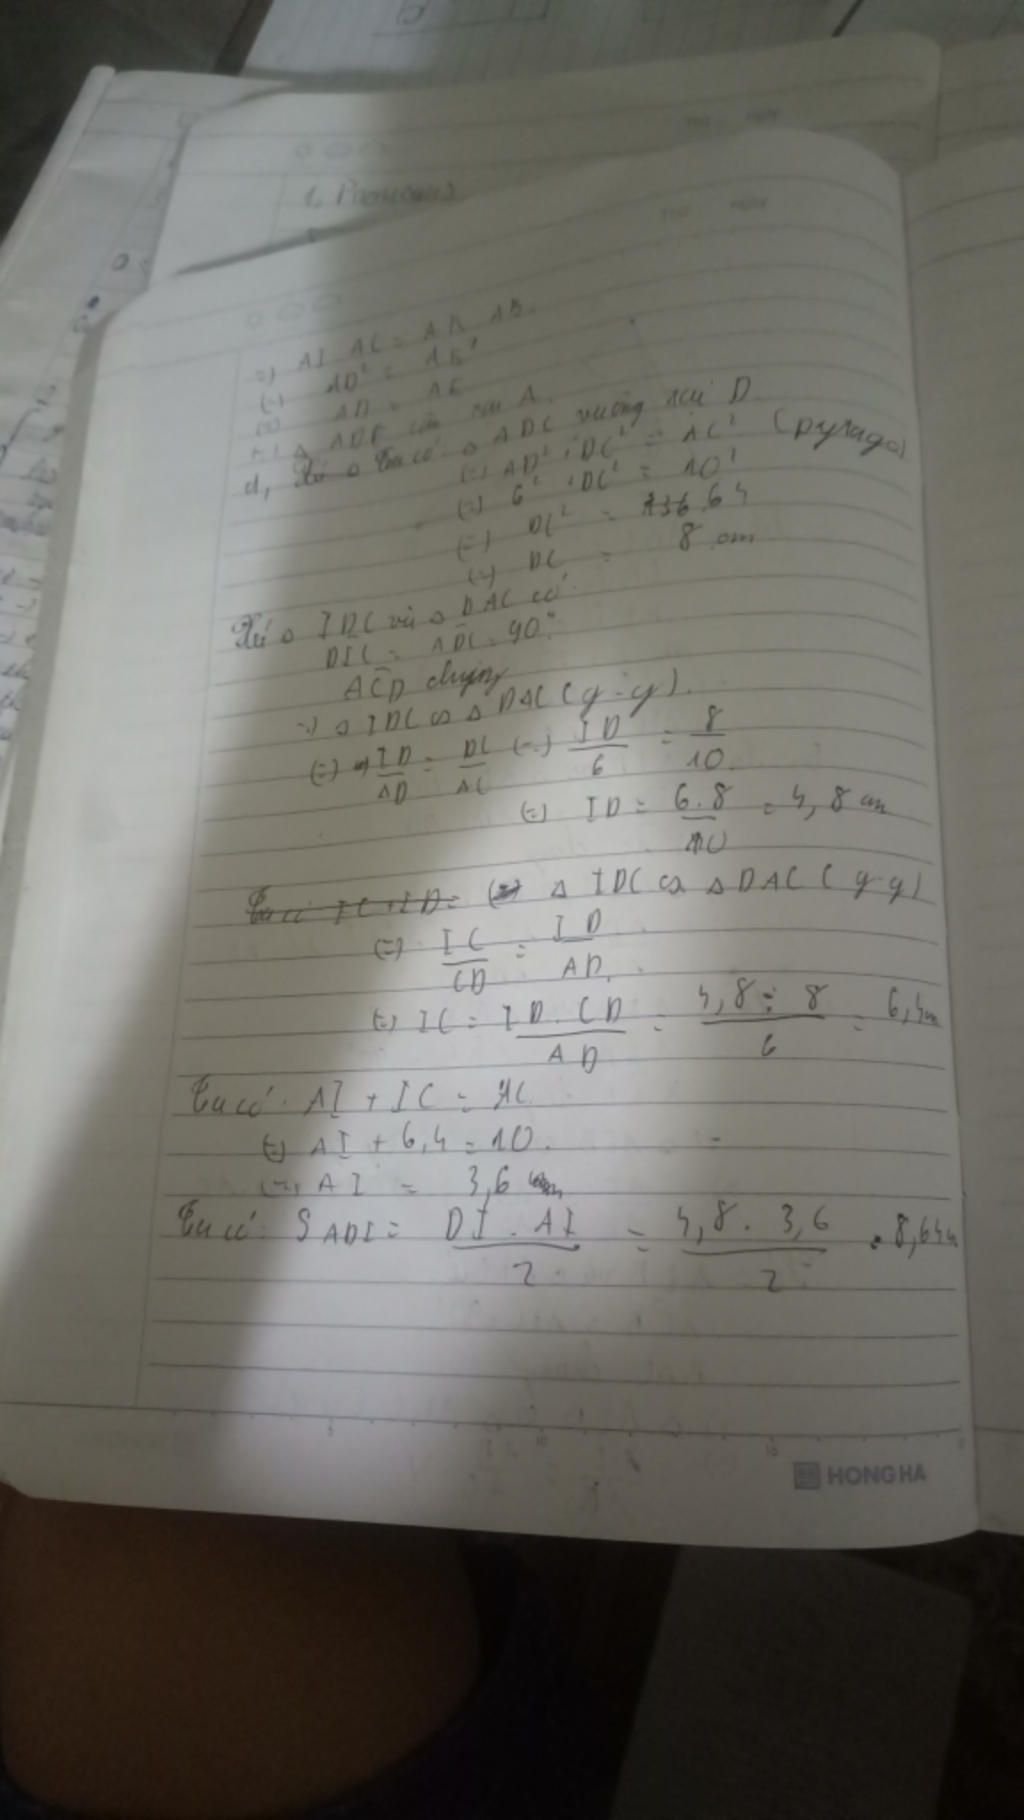 1, Pronouns
=) AI.AC = AK.AB.
(=) AD² = AE²
(=) AD = AE
=) Δ ADE cân tại A.
d, Xét Δ Ta có: Δ ADC vuông tại D
(=) AD² + DC² = AC² (pytago)
(=) 6² + DC² = 10²
(=) DC² = 136 64
(=) DC = 8 cm
Xét Δ IDC và Δ DAC có:
DIC = ADC = 90°
ACD chung
=) Δ IDC ∽ Δ DAC (g.g).
(=) =) ID/AD = DC/AC (=) ID/6 = 8/10
(=) ID = 6.8/10 = 4,8 cm
Ta có IC + ID = (=) Δ IDC ∽ Δ DAC (g.g)
(=) IC/CD = ID/AD
(=) IC = ID.CD/AD = 4,8.8/6 = 6,4cm
Ta có: AI + IC = AC
(=) AI + 6,4 = 10.
(=) AI = 3,6 cm
Ta có: S ADI = DI.AI/2 = 4,8.3,6/2 = 8,64
5 10 15
HONG HA